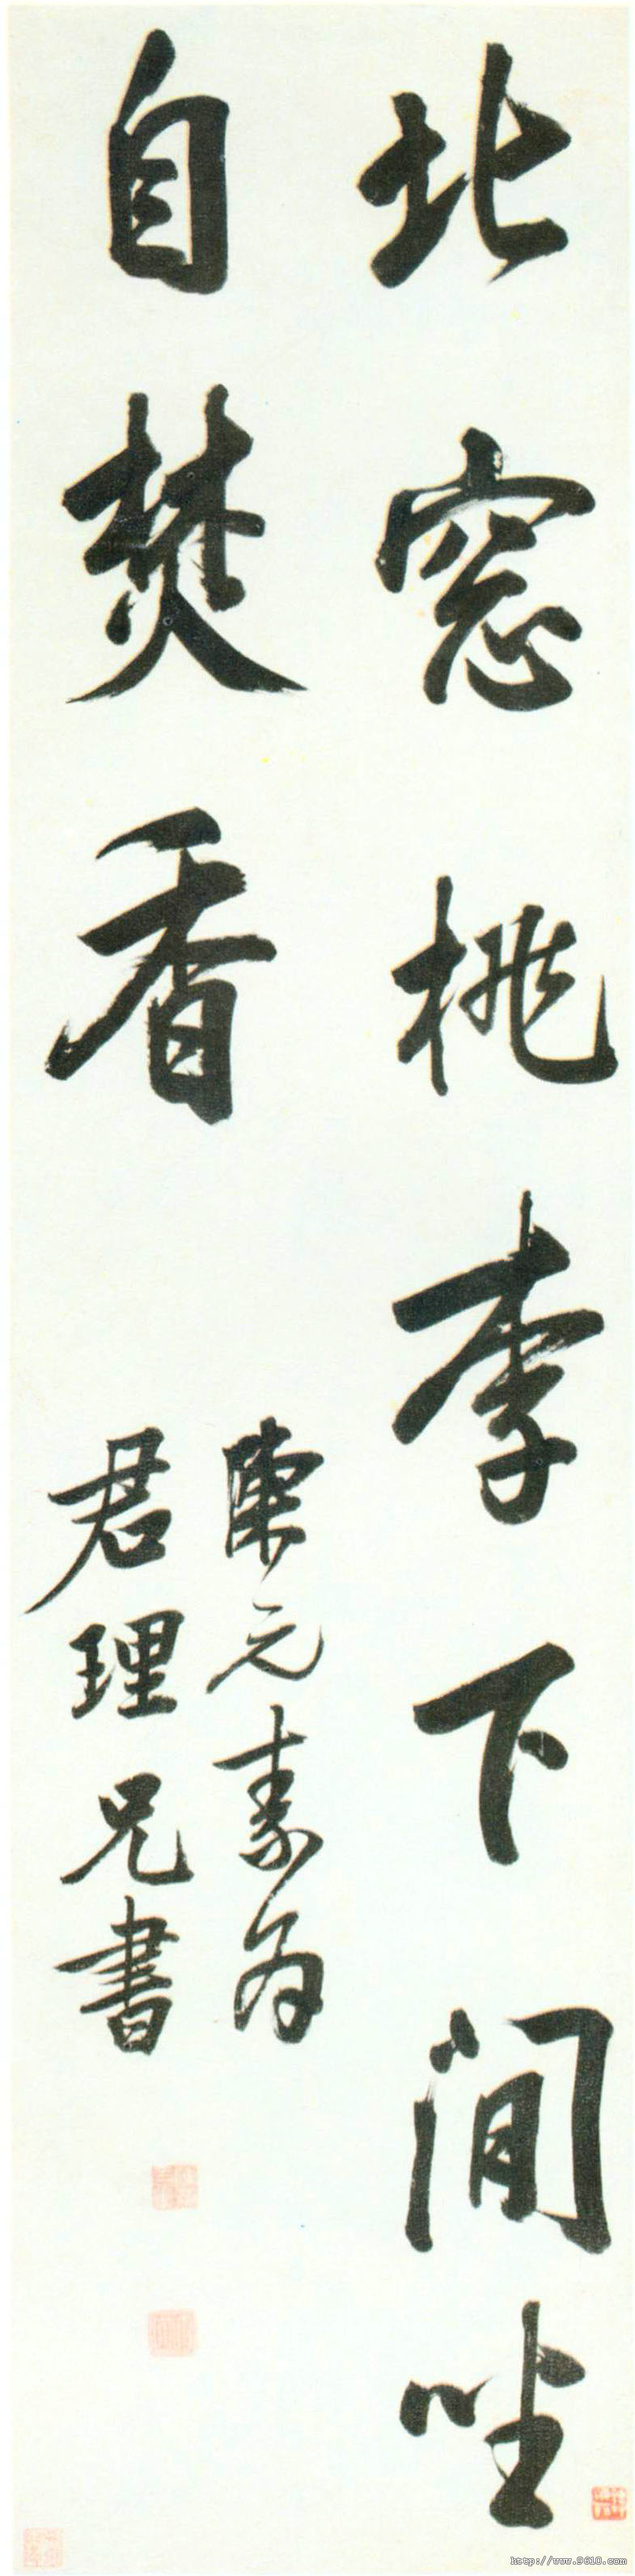 北窓桃李下閒坐
自焚香
陳元素為
君理兄書
http://www.9610.com